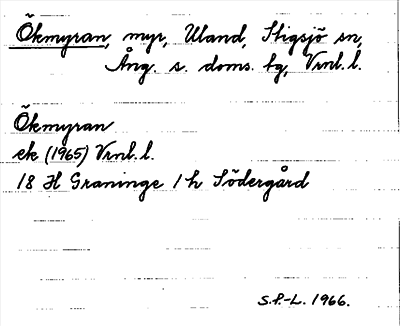 Ökmyran, myr, Uland, Stigsjö sn,
Ång. s. doms. tg, Vrnl. l.
Ökmyran
ek (1965) Vrnl. l.
18 H Graninge 1 h Södergård
S.P.-L. 1966.